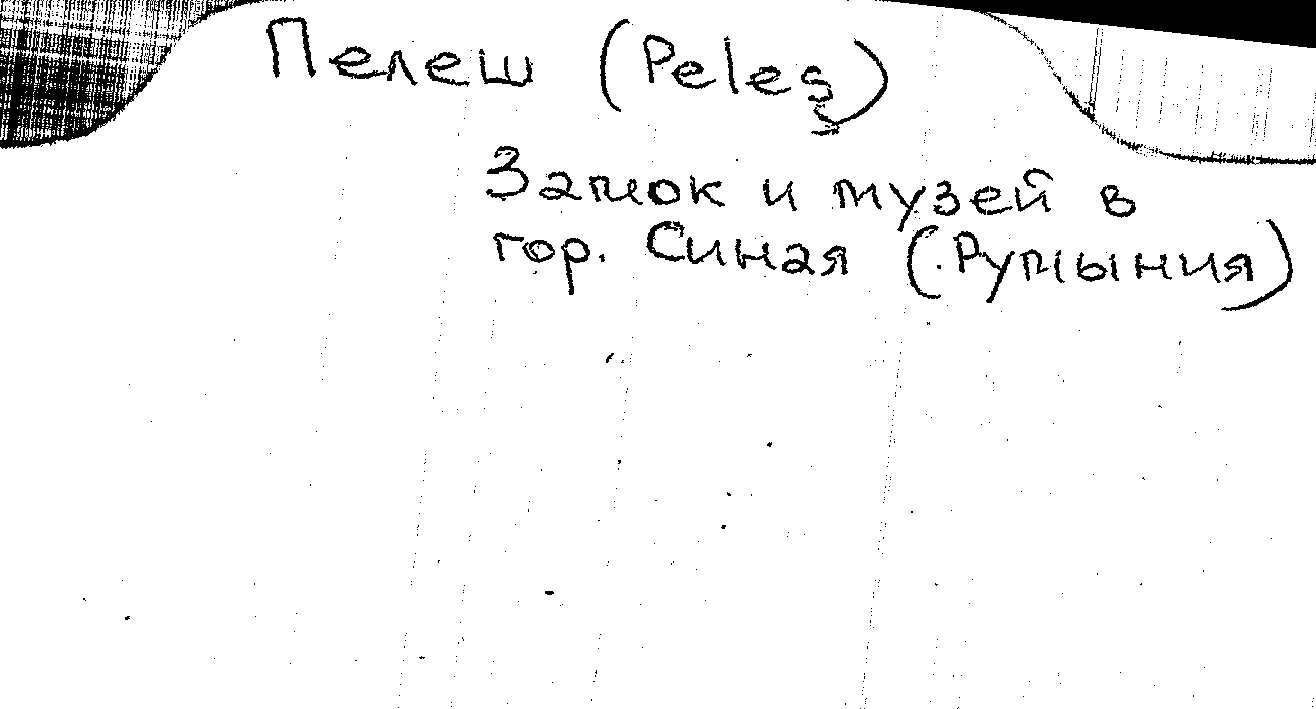 Пелеш (Peleș)
Замок и музей в
гор. Синая (Румыния)